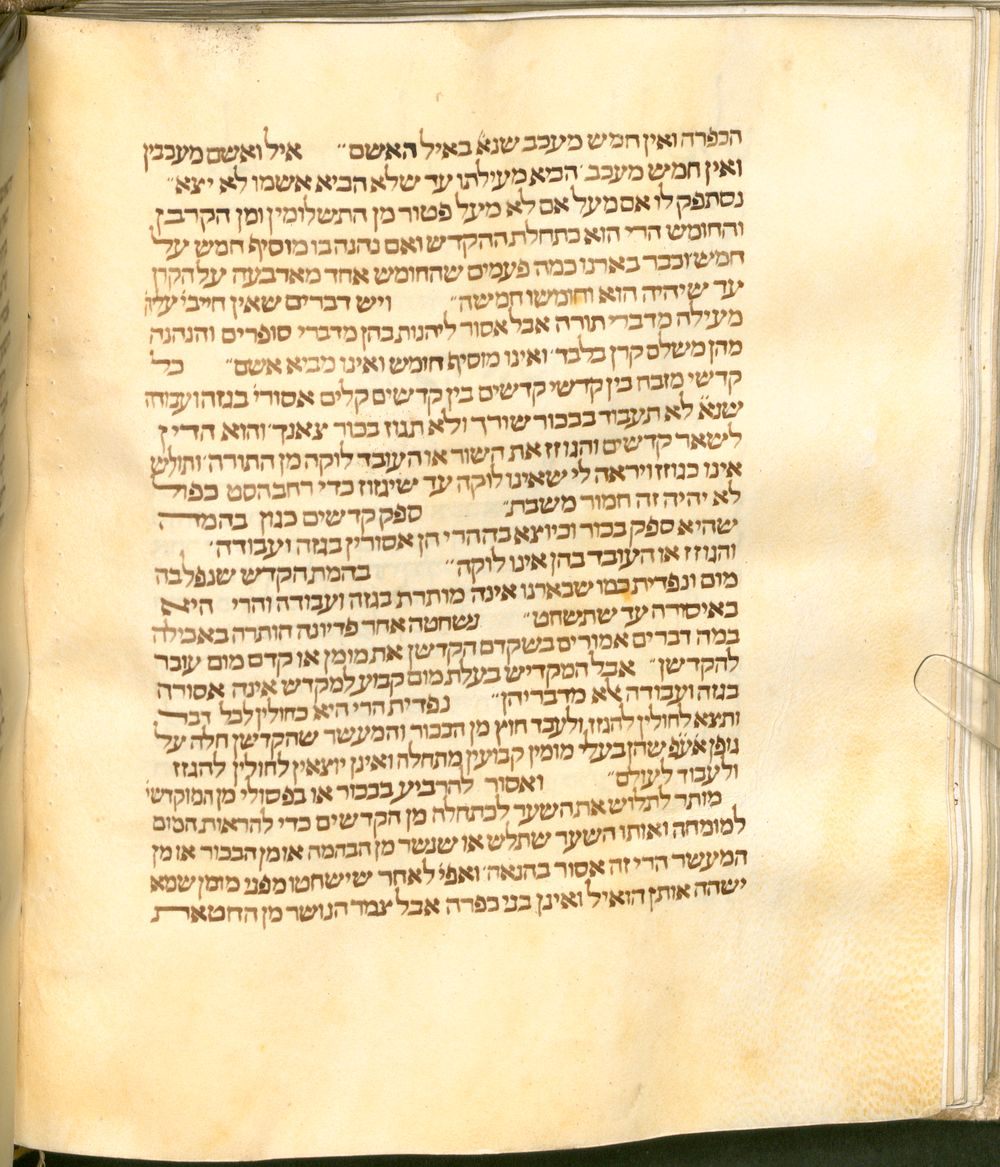 הכפרה ואין חמש מעכב שנא̇ באיל האשם״ איל ואשם מעכבין
ואין חמש מעכב׳ הביא מעילתו עד שלא הביא אשמו לא יצא״
נסתפק לו אם מעל אם לא מעל פטור מן התשלומין ומן הקרבן
והחומש הרי הוא כתחלת ההקדש ואם נהנה בו מוסיף חמש על
חמש וכבר בארנו כמה פעמים שהחומש אחד מארבעה על הקרן
עד שיהיה הוא וחומשו חמשה״ ויש דברים שאין חייבי׳ עליה
מעילה מדברי תורה אבל אסור ליהנות בהן מדברי סופרים והנהנה
מהן משלם קרן בלבד׳ ואינו מוסיף חומש ואינו מביא אשם״ כל
קדשי מזבח בין קדשי קדשים בין קדשים קלים אסורי׳ בגזה ועבודה
שנא̇ לא תעבוד בבכור שורך ולא תגוז בכור צאנך׳ והוא הדין
לישאר קדשים והגוזז את השור או העובד לוקה מן התורה׳ ותולש
אינו כגוזז ויראה לי שאינו לוקה עד שיגזוז כדי רחב הסט כפול
לא יהיה זה חמור משבת״ ספק קדשים כגון בהמה
שהיא ספק בכור וכיוצא בה הרי הן אסורין בגזה ועבודה׳
והגוזז או העובד בהן אינו לוקה״ בהמת הקדש שנפל בה
מום ונפדית כמו שבארנו אינה מותרת בגזה ועבודה והרי היא
באיסורה עד שתשחט״ נשחטה אחר פדיונה חותרה באכילה
במה דברים אמורים בשקדם הקדשן את מומן או קדם מום עובר
להקדשן״ אבל המקדיש בעלת מום קבוע למקדש אינה אסורה
בגזה ועבודה אלא מדבריהן״ נפדית הרי היא כחולין לכל דבר
ותצא לחולין להגזז ולעבד חוץ מן הבכור והמעשר שהקדשן חלה על
גופן אעפ שהן בעלי מומין קבועין מתחלה ואינן יוצאין לחולין להגזז
ולעבוד לעולם״ ואסור להרביע בבכור או בפסולי מן המוקדשי׳
מותר לתלוש את השער לכתחלה מן הקדשים כדי להראות המום
למומחה ואותו השער שתלש או שנשר מן הבהמה או מן הבכור או מן
המעשר הרי זה אסור בהנאה׳ ואפי׳ לאחר שישחטו מפני מומן שמא
ישהה אותן הואיל ואינן בני כפרה אבל צמר הנושר מן החטאת